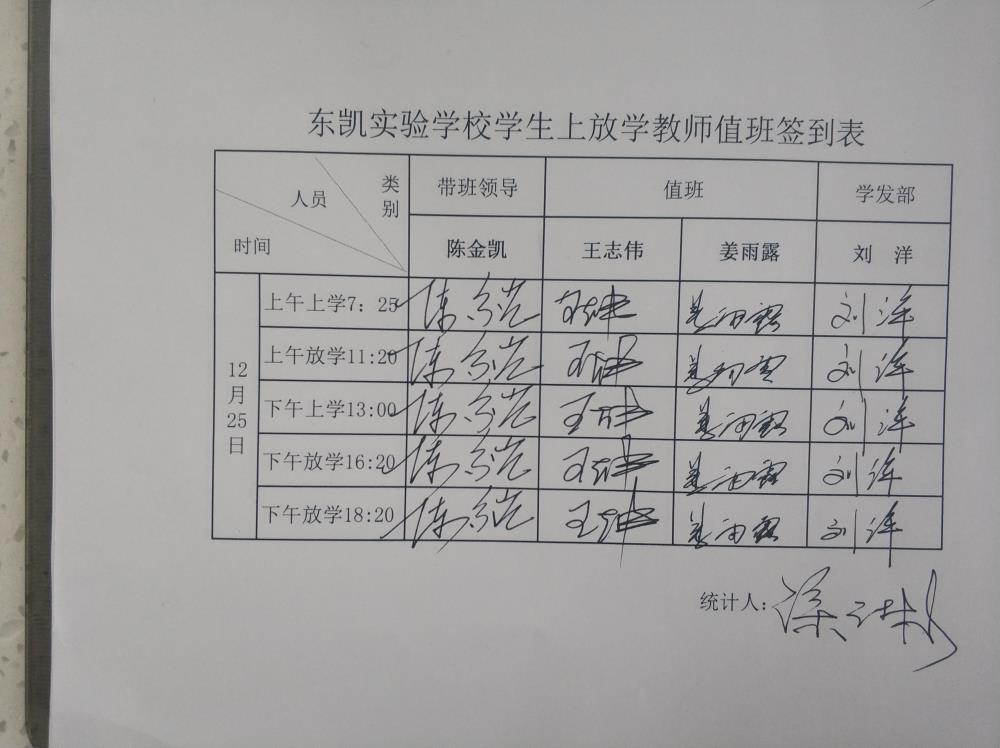 东凯实验学校学生上放学教师值班签到表
人员 类别 带班领导 值班 学发部
时间 陈金凯 王志伟 姜雨露 刘 洋
12月25日
上午上学7：25 陈金凯 王志伟 姜雨露 刘洋
上午放学11:20 陈金凯 王志伟 姜雨露 刘洋
下午上学13:00 陈金凯 王志伟 姜雨露 刘洋
下午放学16:20 陈金凯 王志伟 姜雨露 刘洋
下午放学18:20 陈金凯 王志伟 姜雨露 刘洋
统计人：